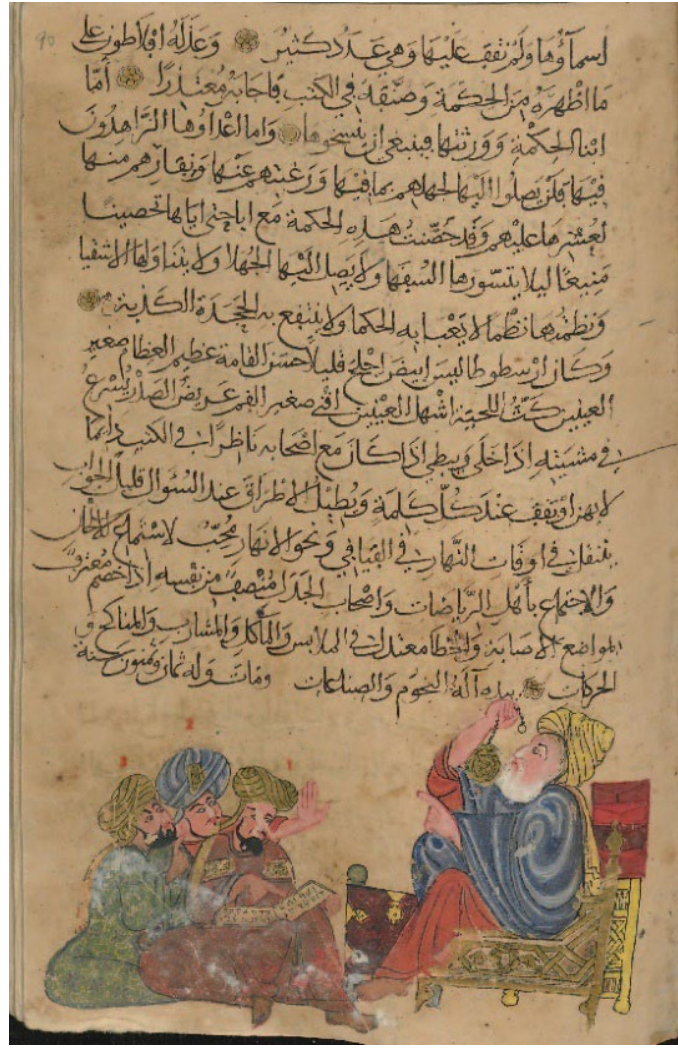 اسماؤها ولم نقف عليها وهي عدد كثير وعذله افلاطون على
ما اظهره من الحكمة وصنفه في الكتب فاجابه معتذرا أمّا
ابنا الحكمة وورثتها فينبغي ان يسخوها واما اعداؤها الزاهدون
فيها فلن يصلوا اليها لجهلهم بما فيها ورغبتهم عنها ونفارهم منها
لعسرها عليهم وقد حصّنت هذه الحكمة مع اباحتي اياها تحصينا
منيعا ليلا يتسورها السفها ولا يصل اليها الجهلا ولا يتناولها الاشقيا
ونظمتها نظما لا يعبا به الحكما ولا ينتفع به الجحدة الكذبة
وكان ارسطوطاليس ابيض اجلح قليلا حسن القامة عظيم العظام صغير
العينين كث اللحية اشهل العينين اقنى صغير الفم عريض الصدر يسرع
في مشيته اذا خلى ويبطي اذا كان مع اصحابه ناظرا في الكتب دائما
لا يهذا ويقف عند كل كلمة ويطيل الاطراق عند السؤال قليل الجواب
يتنقل في اوقات النهار في الفيافي ونحو الانهار محب لاستماع الالحان
والاجتماع بأهل الرياضات واصحاب الجدل منصف من نفسه اذا خصم معترف
بمواضع الاصابة والخطا معتدل في الملابس والمآكل والمشارب والمناكح و
الحركات بيده آلة النجوم والصناعات ومات وله ثمان وستون سنة
90
3
2
1